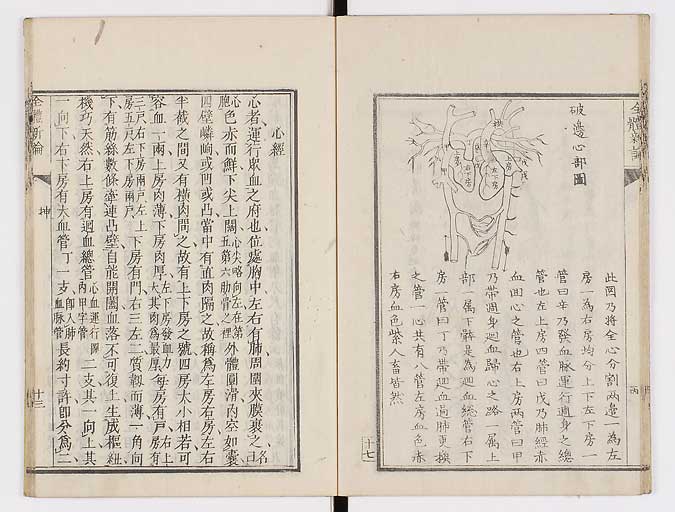 全體新論
丙
破邊心部圖
上房
右下房
左下房
此図乃將全心分割两邊一為左
房一為右房均分上下左下房一
管曰辛乃發血脉運行週身之總
管也左上房四管曰戊乃肺經赤
血囬心之管也右上房两管曰甲
乃帶週身迴血歸心之路一属上
部一属下體是為迴血總管右下
房一管曰丁乃帶迴血過肺更換
之管一心共有八管左房血色赤
右房血色紫人畜皆然
十七
心經
心者運行眾血之府也位處胸中左右有肺周圍夾膜裹之名曰
心胞色赤而鮮下尖上闊心尖略向左在第五第六肋骨之裡外體圓滑內空如囊
四壁嶙峋或凹或凸當中有直肉隔之故稱為左房右房左右
半截之間又有橫肉間之故有上下房之號四房大小相若可
容血一兩上房肉薄下房肉厚左下房發血力大其肉為最厚每房有戶右上房有
三戶右下房兩戶左上房五戶左下房兩戶上下房有門右三左二質韌而薄一角向
下有筋絲數條牽連凸壁自能開闔血落不可復上生成樞紐
機巧天然右上房有迴血總管心血運行圖丙甲字管二支其一向上其
一向下右下房有大血管丁一支即入肺血脈管長約寸許即分為二
全體新論
坤
十三